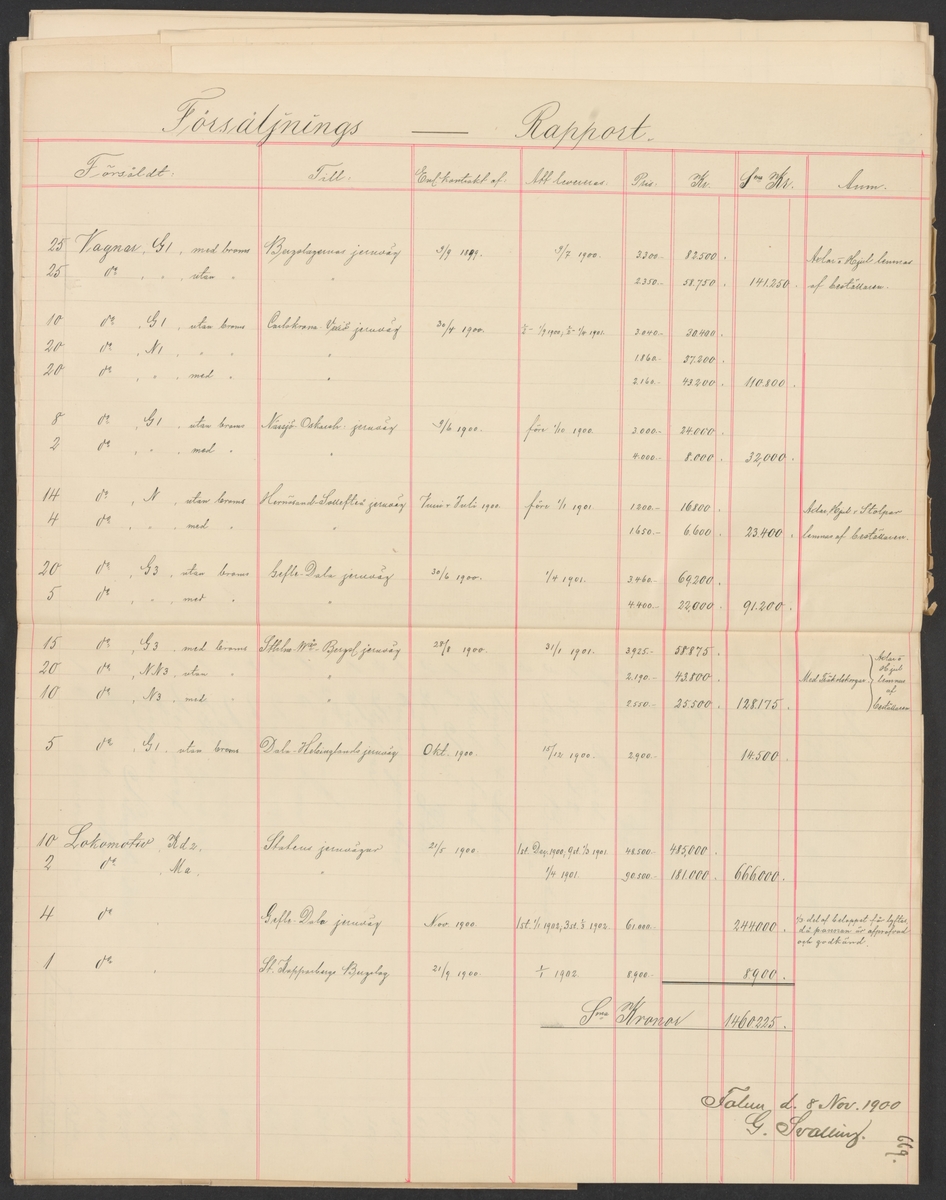 Försäljnings — Rapport.
Försåldt. Till. Enl. kontrakt af. Att leverera. Pris. Kr. Sma Kr. Anm.
25 Vagnar, G1, med broms Bergslagernas jernväg 9/9 1899. 9/7 1900. 3300.- 82.500. Axlar o Hjul lemnas
25 do " " utan " " 2350.- 58.750. 141.250. af beställaren.
10 do, G1, utan broms Carlskrona Vexiö jernväg 30/4 1900. 3.040.- 30.400.
20 do, N1, " " 1860.- 37.200.
20 do, " , med " " 2.160.- 43.200. 110.800.
8 do, G1, utan broms Nässjö-Oskarsh. jernväg 9/6 1900. före 1/10 1900. 3.000.- 24.000.
2 do, " , med " " 4.000.- 8.000. 32,000.
14 do, N, utan broms Hernösand-Sollefteå jernväg Juni o Juli 1900. före 1/1 1901. 1200.- 16800. Axlar, Hjul o Stolpar
4 do, " , med " " 1650.- 6.600. 23.400. lemnas af beställaren.
20 do, G3, utan broms Gefle-Dala jernväg 30/6 1900. 1/4 1901. 3.460.- 69,200.
5 do, " , med " " 4.400.- 22,000. 91.200.
15 do, G3, med broms Sthlm-Wås-Bergsl. jernväg 28/8 1900. 31/1 1901. 3925.- 58875. Axlar o
Hjul
20 do, NN3, utan " " 2.190.- 43.800. lemnas
af
10 do, N3, med " " 2.550.- 25.500. 128.175. beställaren
5 do, G1, utan broms Dala-Helsinglands jernväg Okt. 1900. 15/12 1900. 2.900.- 14.500.
10 Lokomotiv, Kd2. Statens jernvägar 21/5 1900. 1 st. Dec. 1900, 9 st. 1/3 1901. 48.500.- 485,000.
2 do Ma. " 1/4 1901. 90.500.- 181.000. 666.000.
4 do Gefle-Dala jernväg Nov. 1900. 1 st. 1/1 1902, 3 st. 1902 61.000.- 244.000. del af beloppet får lyftas
då pannan är afprofvad
och godkänd.
1 do " St. Kopparbergs Bergslag 21/9 1900. 1902. 8900.- 8900.
Sma Kronor 1460.225.
Falun d. 8 Nov. 1900
G. Svalling.
669.